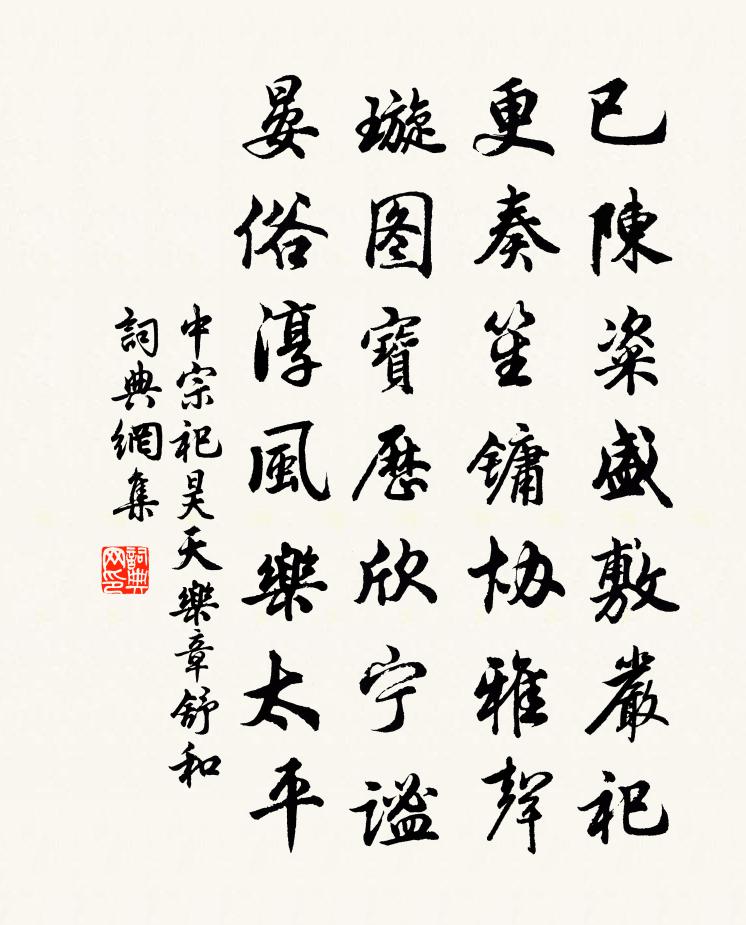 已陳粢盛敷嚴祀
更奏笙鏞协雅聲
璇图寶歷欣宁謐
晏俗淳風樂太平
中宗祀昊天樂章舒和
詞典網集
詞典网印